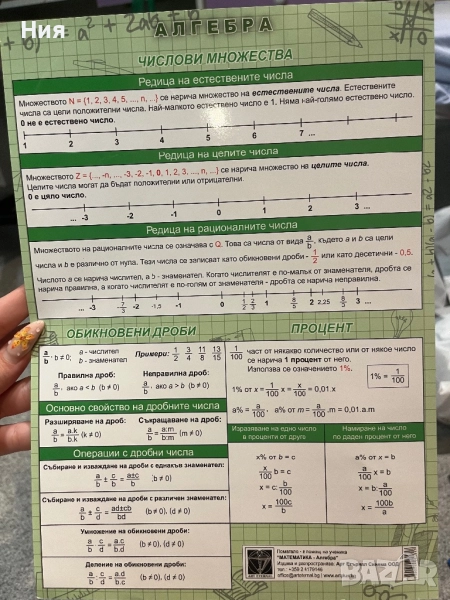 Ния
АЛГЕБРА
ЧИСЛОВИ МНОЖЕСТВА
Редица на естествените числа
Множеството N = {1, 2, 3, 4, 5, ..., n, ...} се нарича множество на естествените числа. Естествените
числа са цели положителни числа. Най-малкото естествено число е 1. Няма най-голямо естествено число.
0 не е естествено число.
1 2 3 4 5 6 7 ...
Редица на целите числа
Множеството Z = {..., -n, ..., -3, -2, -1, 0, 1, 2, 3, ..., n, ...} се нарича множество на целите числа.
Целите числа могат да бъдат положителни или отрицателни.
0 е цяло число.
... -3 -2 -1 0 1 2 3 ...
Редица на рационалните числа
Множеството на рационалните числа се означава с Q. Това са числа от вида a/b, където a и b са цели
числа и b е различно от нула. Тези числа се записват като обикновени дроби - 1/2 или като десетични - 0,5.
Числото a се нарича числител, а b - знаменател. Когато числителят е по-малък от знаменателя, дробта се
нарича правилна, а когато числителят е по-голям от знаменателя - дробта се нарича неправилна.
... -3 -2 -1,5 -1 0 1 2 2,25 3 ...
ОБИКНОВЕНИ ДРОБИ
a/b, b ≠ 0; a - числител
b - знаменател
Примери: 1/2 3/4 11/8 13/15
Правилна дроб: Неправилна дроб:
a/b, ако a < b (b ≠ 0) a/b, ако a > b (b ≠ 0)
Основно свойство на дробните числа
Разширяване на дроб: Съкращаване на дроб:
a/b = a.k/b.k (k ≠ 0) a/b = a:m/b:m (m ≠ 0)
Операции с дробни числа
Събиране и изваждане на дроби с еднакъв знаменател:
a/b ± c/b = a±c/b (b ≠ 0)
Събиране и изваждане на дроби с различен знаменател:
a/b ± c/d = ad±cb/bd (b ≠ 0), (d ≠ 0)
Умножение на обикновени дроби:
a/b . c/d = a.c/b.d (b ≠ 0), (d ≠ 0)
Деление на обикновени дроби:
(b ≠ 0), (d ≠ 0)
ПРОЦЕНТ
1/100 част от някакво количество или от някое число
се нарича 1 процент от него.
Използва се означението 1%.
1% = 1/100
1% от x = 1/100 x = x/100 = 0,01.x
a% = a/100, a% от m = a/100 .m = 0,01.a.m
Изразяване на едно число
в проценти от друго
x% от b = c
x/100 b = c
x = c: b/100
x = 100c/b
Намиране на число
по даден процент от него
a% от x = b
a/100 x = b
x = b: a/100
x = 100b/a
Помагало - в помощ на ученика
"МАТЕМАТИКА - Алгебра"